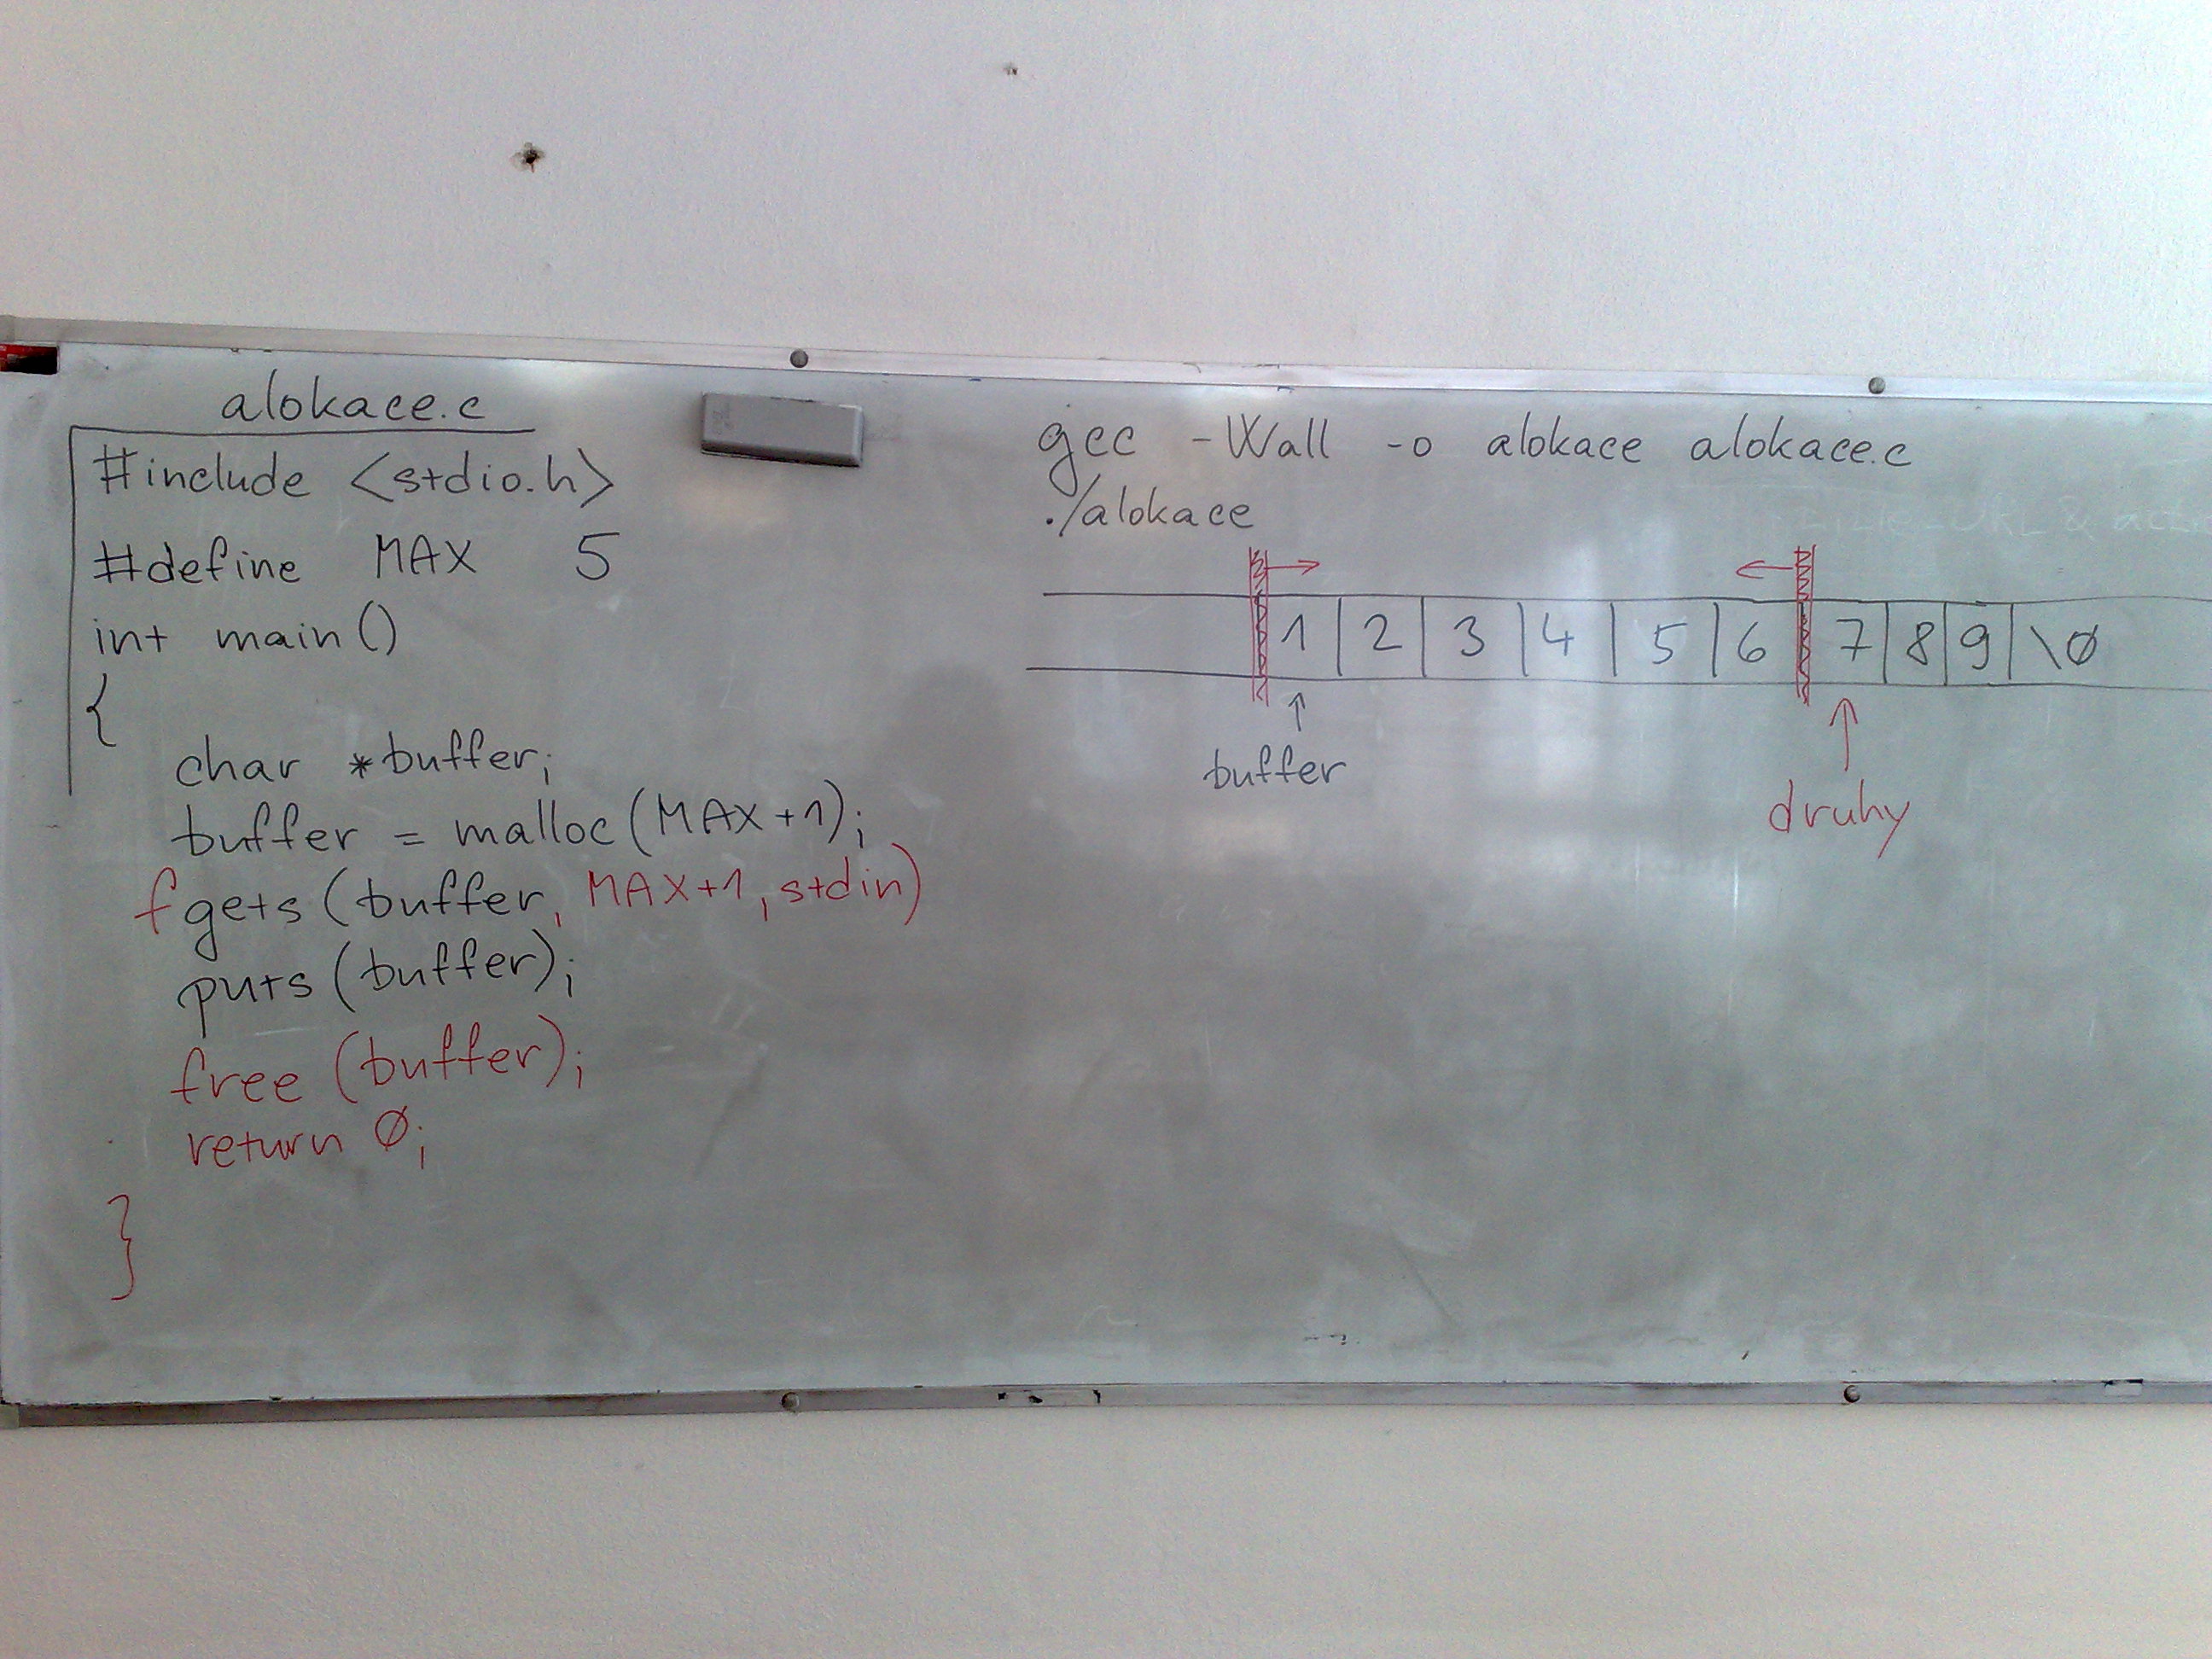 alokace.c
#include <stdio.h>
#define MAX 5
int main()
{
char *buffer;
buffer = malloc(MAX+1);
fgets(buffer, MAX+1, stdin)
puts(buffer);
free(buffer);
return 0;
}
gcc -Wall -o alokace alokace.c
./alokace
1 2 3 4 5 6 7 8 9 \0
buffer
druhy